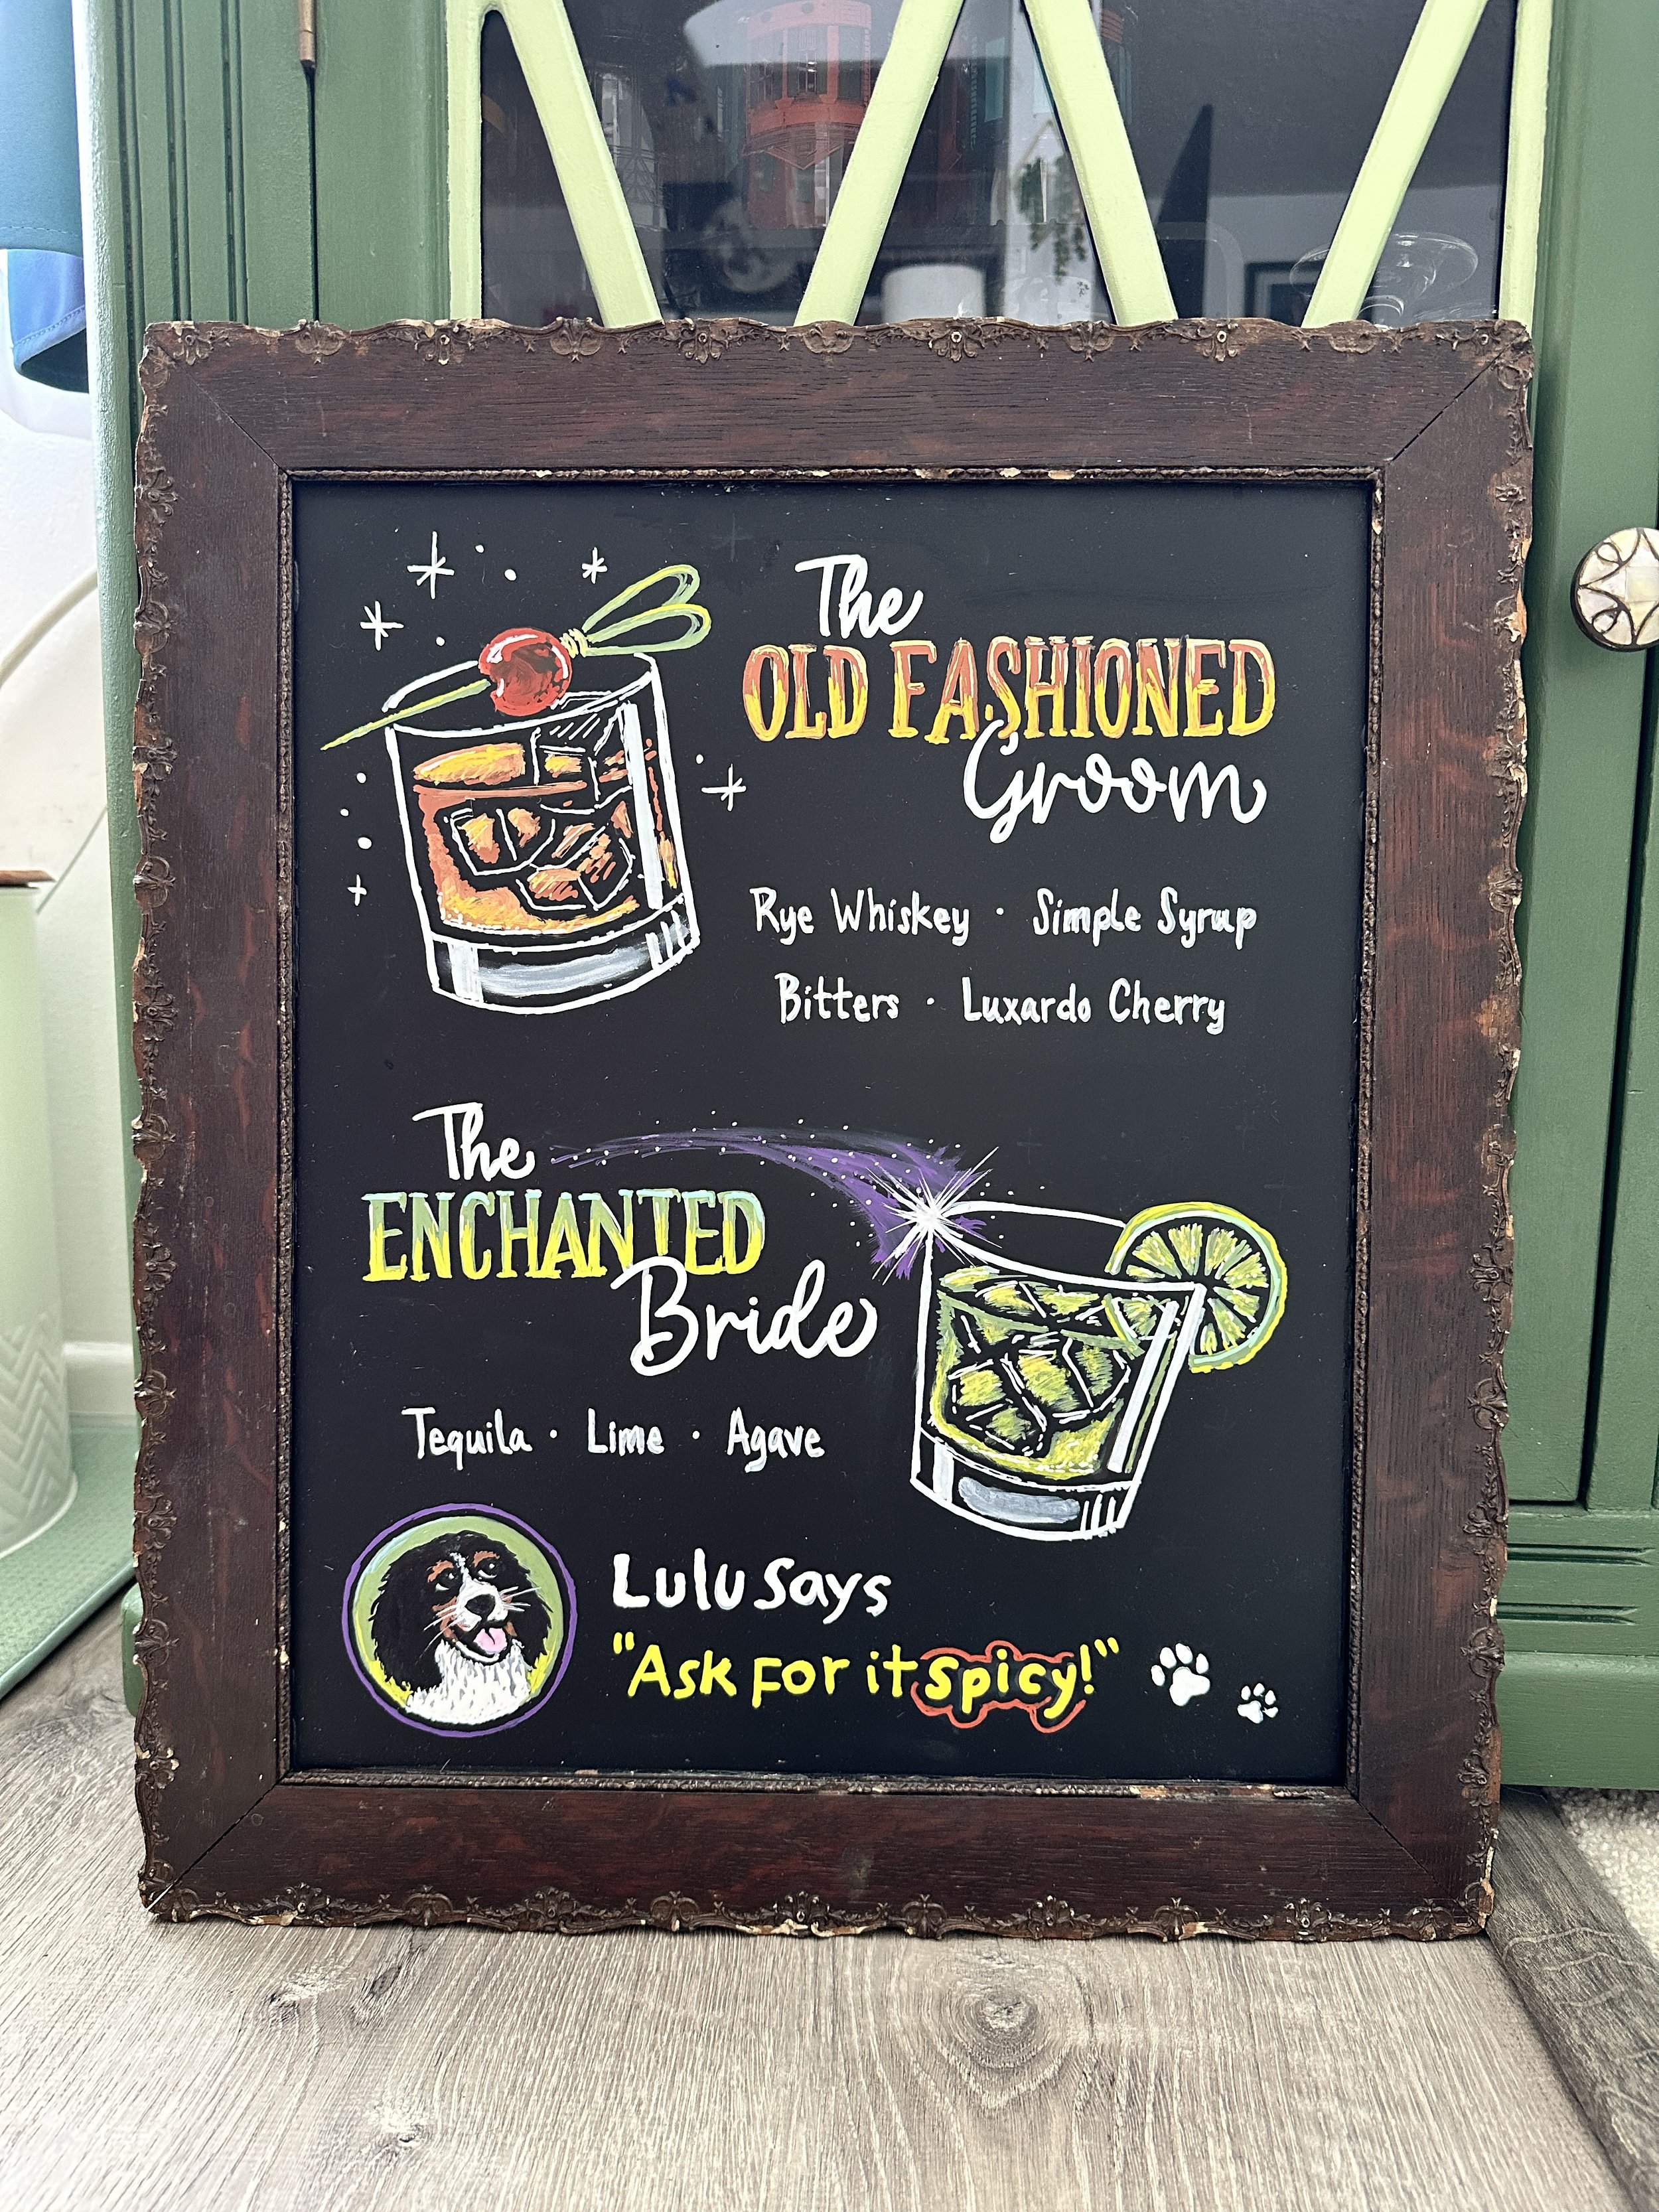 The
OLD FASHIONED
Groom
Rye Whiskey · Simple Syrup
Bitters · Luxardo Cherry
The
ENCHANTED
Bride
Tequila · Lime · Agave
Lulu says
"Ask for it spicy!"